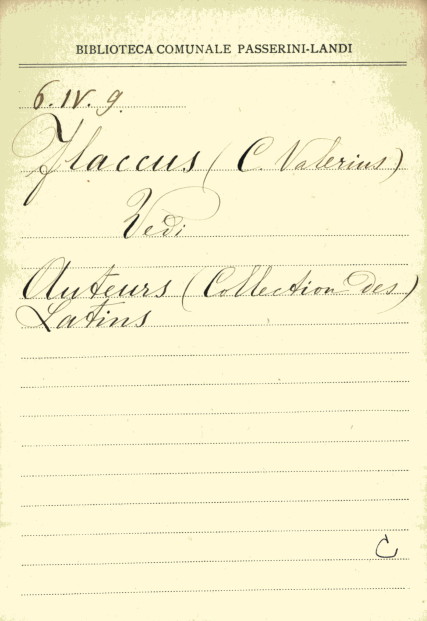 BIBLIOTECA COMUNALE PASSERINI-LANDI
6. IV. 9.
Flaccus (C. Valerius)
Vedi
Auteurs (Collection des)
Latins
C